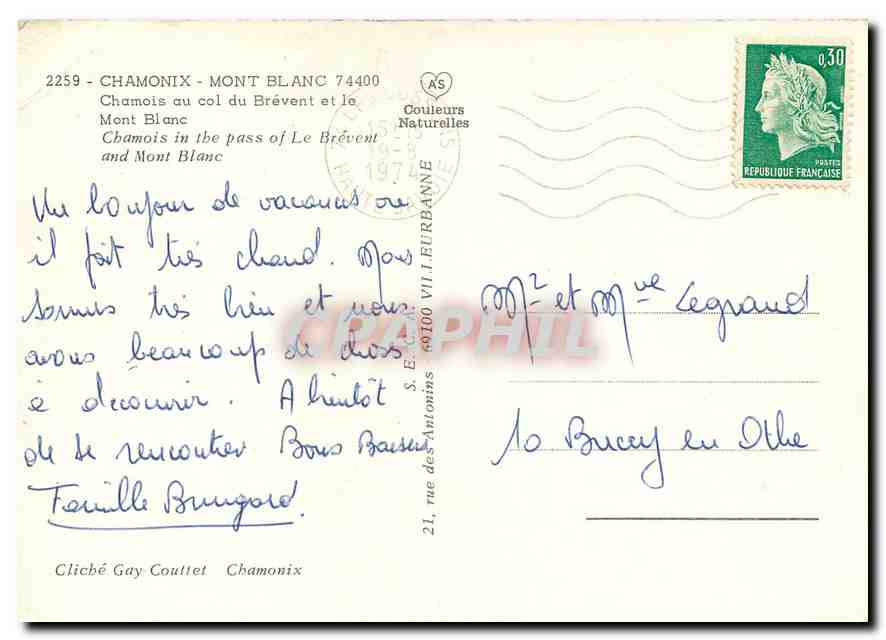 2259 - CHAMONIX - MONT BLANC 74400
Chamois au col du Brévent et le
Mont Blanc
Chamois in the pass of Le Brévent
and Mont Blanc
AS
Couleurs
Naturelles
1974
HAUTE SAVOIE
0,30
POSTES
RÉPUBLIQUE FRANÇAISE
Un bonjour de vacances ou
il fait très chaud. Nous
sommes très bien et nous
avons beaucoup de choses
à découvrir. A bientôt
de se rencontrer Bons Baisers
Famille Brungard
Cliché Gay Couttet Chamonix
S. E. C. A.
21, rue des Antonins 69100 VILLEURBANNE
CPARHIL
Mr et Mme Legrand
10 Bucey en Othe